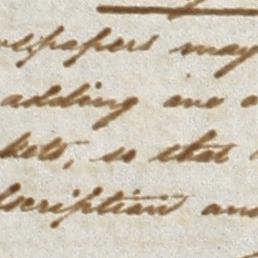 wspapers may
adding one o
kets, so that
scription and